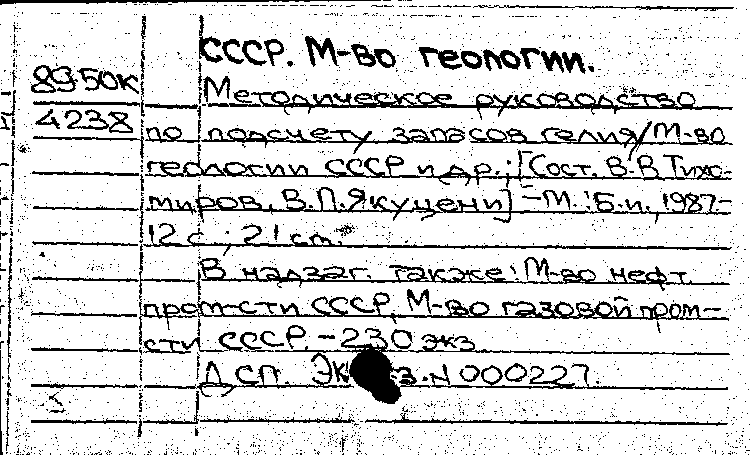 СССР. М-во геологии.
89-50К Методическое руководство
4238 по подсчету запасов гелия/М-во
геологии СССР и др.; [Сост. В.В.Тихо-
миров, В.П.Якуцени] -М.: Б.и., 1987-
12 с.; 21 см.
В надзаг. также: М-во нефт.
пром-сти СССР, М-во газовой пром-
сти СССР. -230 экз.
ДСП. Экз.N 000227.